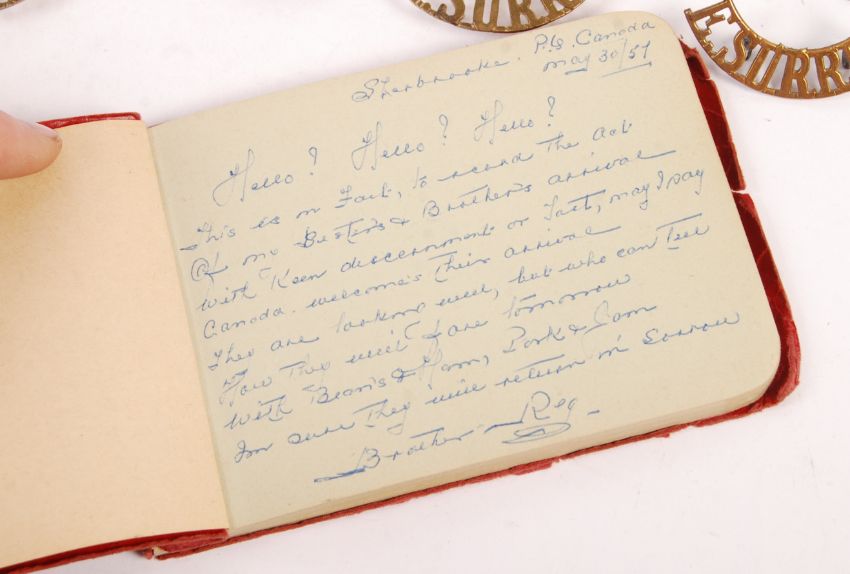 E.SURREY
E.SURR
Sherbrooke. P.Q. Canada
May 30/57
Hello? Hello? Hello?
This is in Fact, to record the act
Of me & Brother's arrival
With Keen discernment or Tact, may I say
Canada. welcome's their arrival
They are looking well, but who can tell
How They will fare tomorrow
With Bean's & Ham, Pork & Jam
Im sure they will return in sorrow
Brother Reg